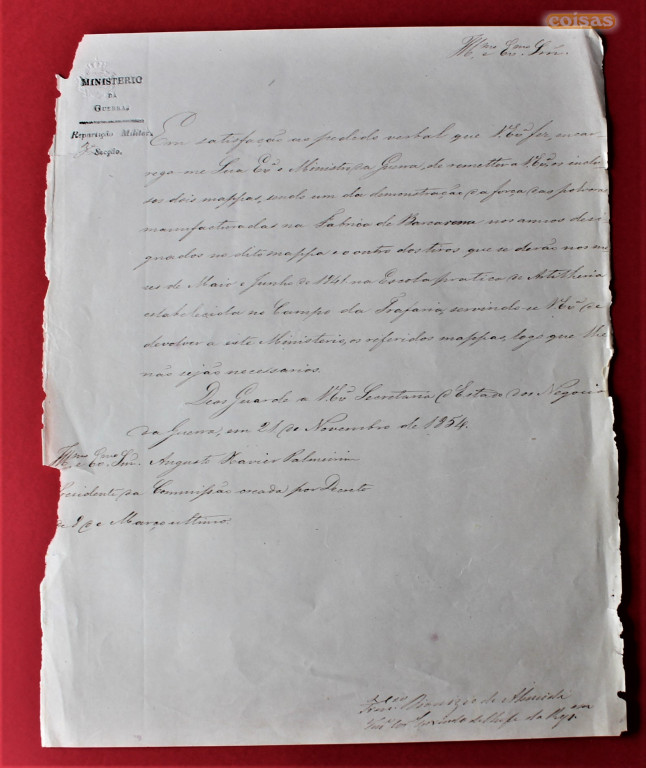 coisas
Ill.mo e Ex.mo Snr.
MINISTERIO
DA
GUERRA
Repartição Militar
Secção.
Em satisfação ao pedido verbal que V. Ex.a fez, encar-
rega-me Sua Ex.a o Ministro da Guerra, de remetter a V. Ex.a os inclu-
sos dois mappas, sendo um da demonstração da força das polvoras
manufacturadas na Fabrica de Barcarena nos annos desi-
gnados no dito mappa e o outro dos tiros que se derão nos me-
ses de Maio e Junho de 1841 na Escola pratica de Artilheria
estabelecida no Campo da Trafaria, servindo-se V. Ex.a de
devolver a este Ministerio, os referidos mappas, logo que lhe
não sejão necessarios.
Deos Guarde a V. Ex.a Secretaria d'Estado dos Negocios
da Guerra, em 21 de Novembro de 1854.
Ill.mo e Ex.mo Snr. Augusto Xavier Palmeirim
Presidente da Commissão creada por Decreto
de 9 de Março ultimo.
de Almeida
servindo de Chefe da